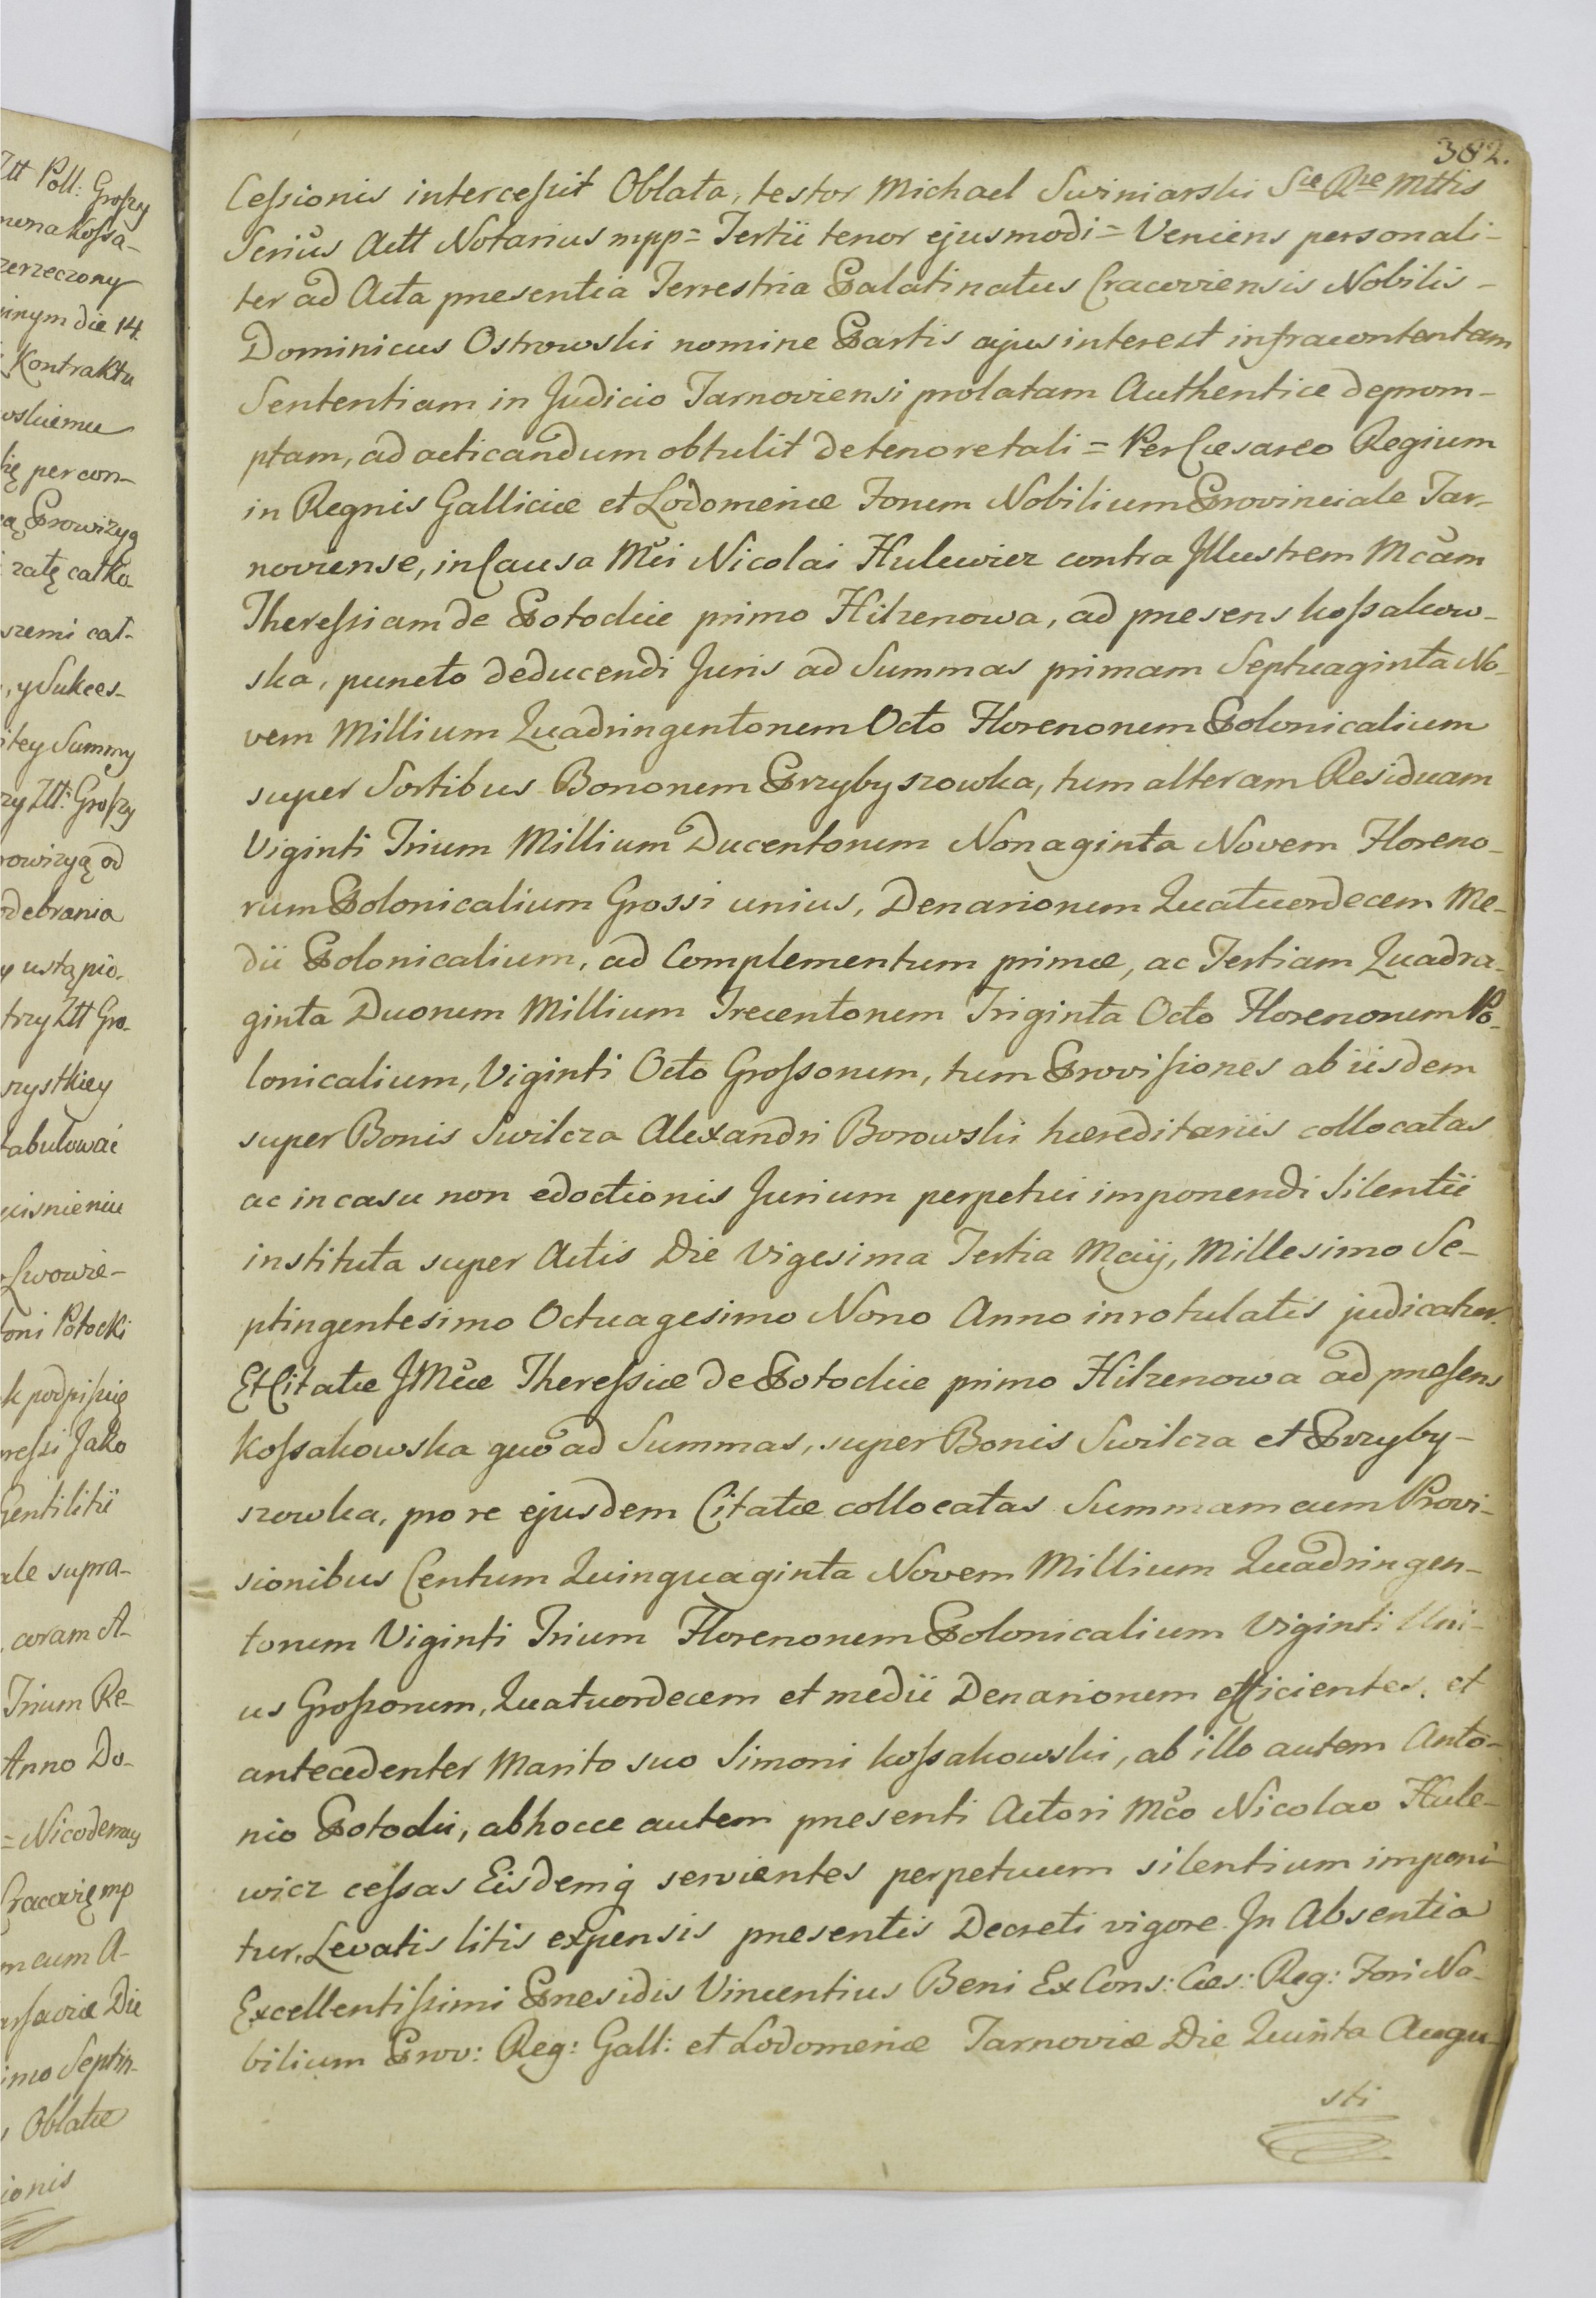 382.
Cessionis intercessit Oblata, testor Michael Swiniarski Sae Rae Mttis
Serius Actt Notarius mpp = Tertii tenor ejusmodi = Veniens personali-
ter ad Acta presentia Terrestria Palatinatus Cracoviensis Nobilis -
Dominicus Ostrowski nomine Partis cujus interest infracontentam
Sententiam in Judicio Tarnoviensi prolatam Authentice deprom-
ptam, ad acticandum obtulit de tenore tali = Per Cæsareo Regium
in Regnis Galliciæ et Lodomeriæ Forum Nobilium Provinciale Tar-
noviense, in Causa Mci Nicolai Hulewicz contra Illustrem Mcam
Theressiam de Potockie primo Hilzenowa, ad presens Kossakow-
ska, puncto deducendi Juris ad Summas primam Septuaginta No-
vem Millium Quadringentorum Octo Florenorum Polonicalium
super Sortibus Bonorum Przybyszowka, tum alteram Residuam
Viginti Trium Millium Ducentorum Nonaginta Novem Floreno-
rum Polonicalium Grossi unius, Denariorum Quatuordecem Me-
dii Polonicalium, ad Complementum primæ, ac Tertiam Quadra-
ginta Duorum Millium Trecentorum Triginta Octo Florenorum Po-
lonicalium, Viginti Octo Grossorum, tum Provisiones ab iisdem
super Bonis Swilcza Alexandri Borowski hæreditariis collocatas
ac in casu non edoctionis Jurium perpetui imponendi Silentii
instituta super Actis Die Vigesima Tertia Maij, Millesimo Se-
ptingentesimo Octuagesimo Nono Anno inrotulatis judicatur.
Et Citatæ JMcæ Theressiæ de Potockie primo Hilzenowa ad presens
Kossakowska quo ad Summas, super Bonis Swilcza et Przyby-
szowka, pro re ejusdem Citatæ collocatas Summam cum Provi-
sionibus Centum Quinquaginta Novem Millium Quadringen-
torum Viginti Trium Florenorum Polonicalium Viginti Uni-
us Grossorum, Quatuordecem et medii Denariorum efficientes, et
antecedenter Marito suo Simoni Kossakowski, ab illo autem Anto-
nio Potocki, ab hocce autem presenti Actori Mco Nicolao Hule-
wicz cessas Eisdemq servientes perpetuum silentium imponi-
tur, Levatis litis expensis presentis Decreti vigore. In Absentia
Excellentissimi Presidis Vincentius Beni Ex Cons: Cæs: Reg: Fori No-
bilium Prov: Reg: Gall: et Lodomeriæ Tarnoviæ Die Quinta Augu-
sti
Ztt Poll: Groszy
zerzeczony
die 14.
Kontraktu
per con-
Prowizyą
ratę całko-
y Sukces-
Summy
Ztt: Groszy
od
odebrania
trzy Ztt Gro-
Potocki
podpisuię
Jako
Gentilitii
supra-
coram A-
Trium Re-
Anno Do-
= Nicodemus
Cracovię mp
cum A-
Die
Septin-
Oblatæ
ionis